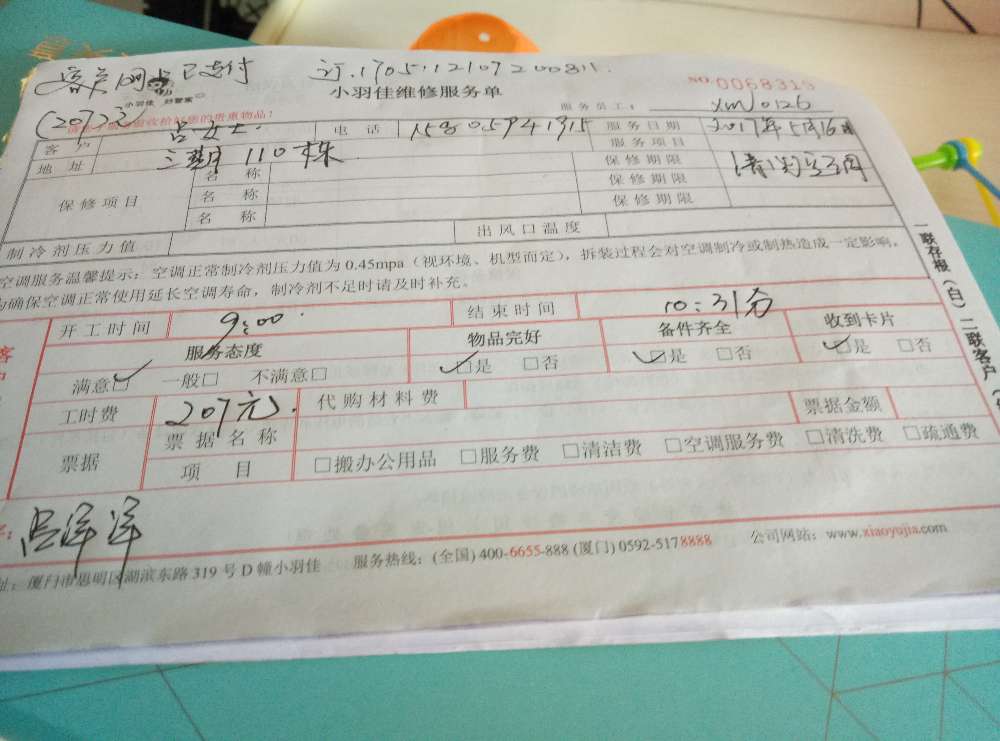 客人网上已支付 订.170511210720081.
NO.0068315
小羽佳 好管家
小羽佳维修服务单
服务员工: xm0126
(207元)
客户 吕女士. 电话 服务日期 2017年5月16日
地址 三期110栋 服务项目
保修项目 名称 保修期限
名称 保修期限
名称 保修期限
制冷剂压力值 出风口温度
空调服务温馨提示:空调正常制冷剂压力值为0.45mpa(视环境、机型而定),拆装过程会对空调制冷或制热造成一定影响,
为确保空调正常使用延长空调寿命,制冷剂不足时请及时补充。
开工时间 9:00. 结束时间 10:31分
服务态度 物品完好 备件齐全 收到卡片
满意□ 一般□ 不满意□ □是 □否 □是 □否 □是 □否
工时费 207元. 代购材料费 票据金额
票据 票据名称
项目 □搬办公用品 □服务费 □清洁费 □空调服务费 □清洗费 □疏通费
吕洋洋
址:厦门市思明区湖滨东路319号D幢小羽佳 服务热线:(全国)400-6655-888(厦门)0592-5178888 公司网站:www.xiaoyujia.com
一联存根(白)二联客户(